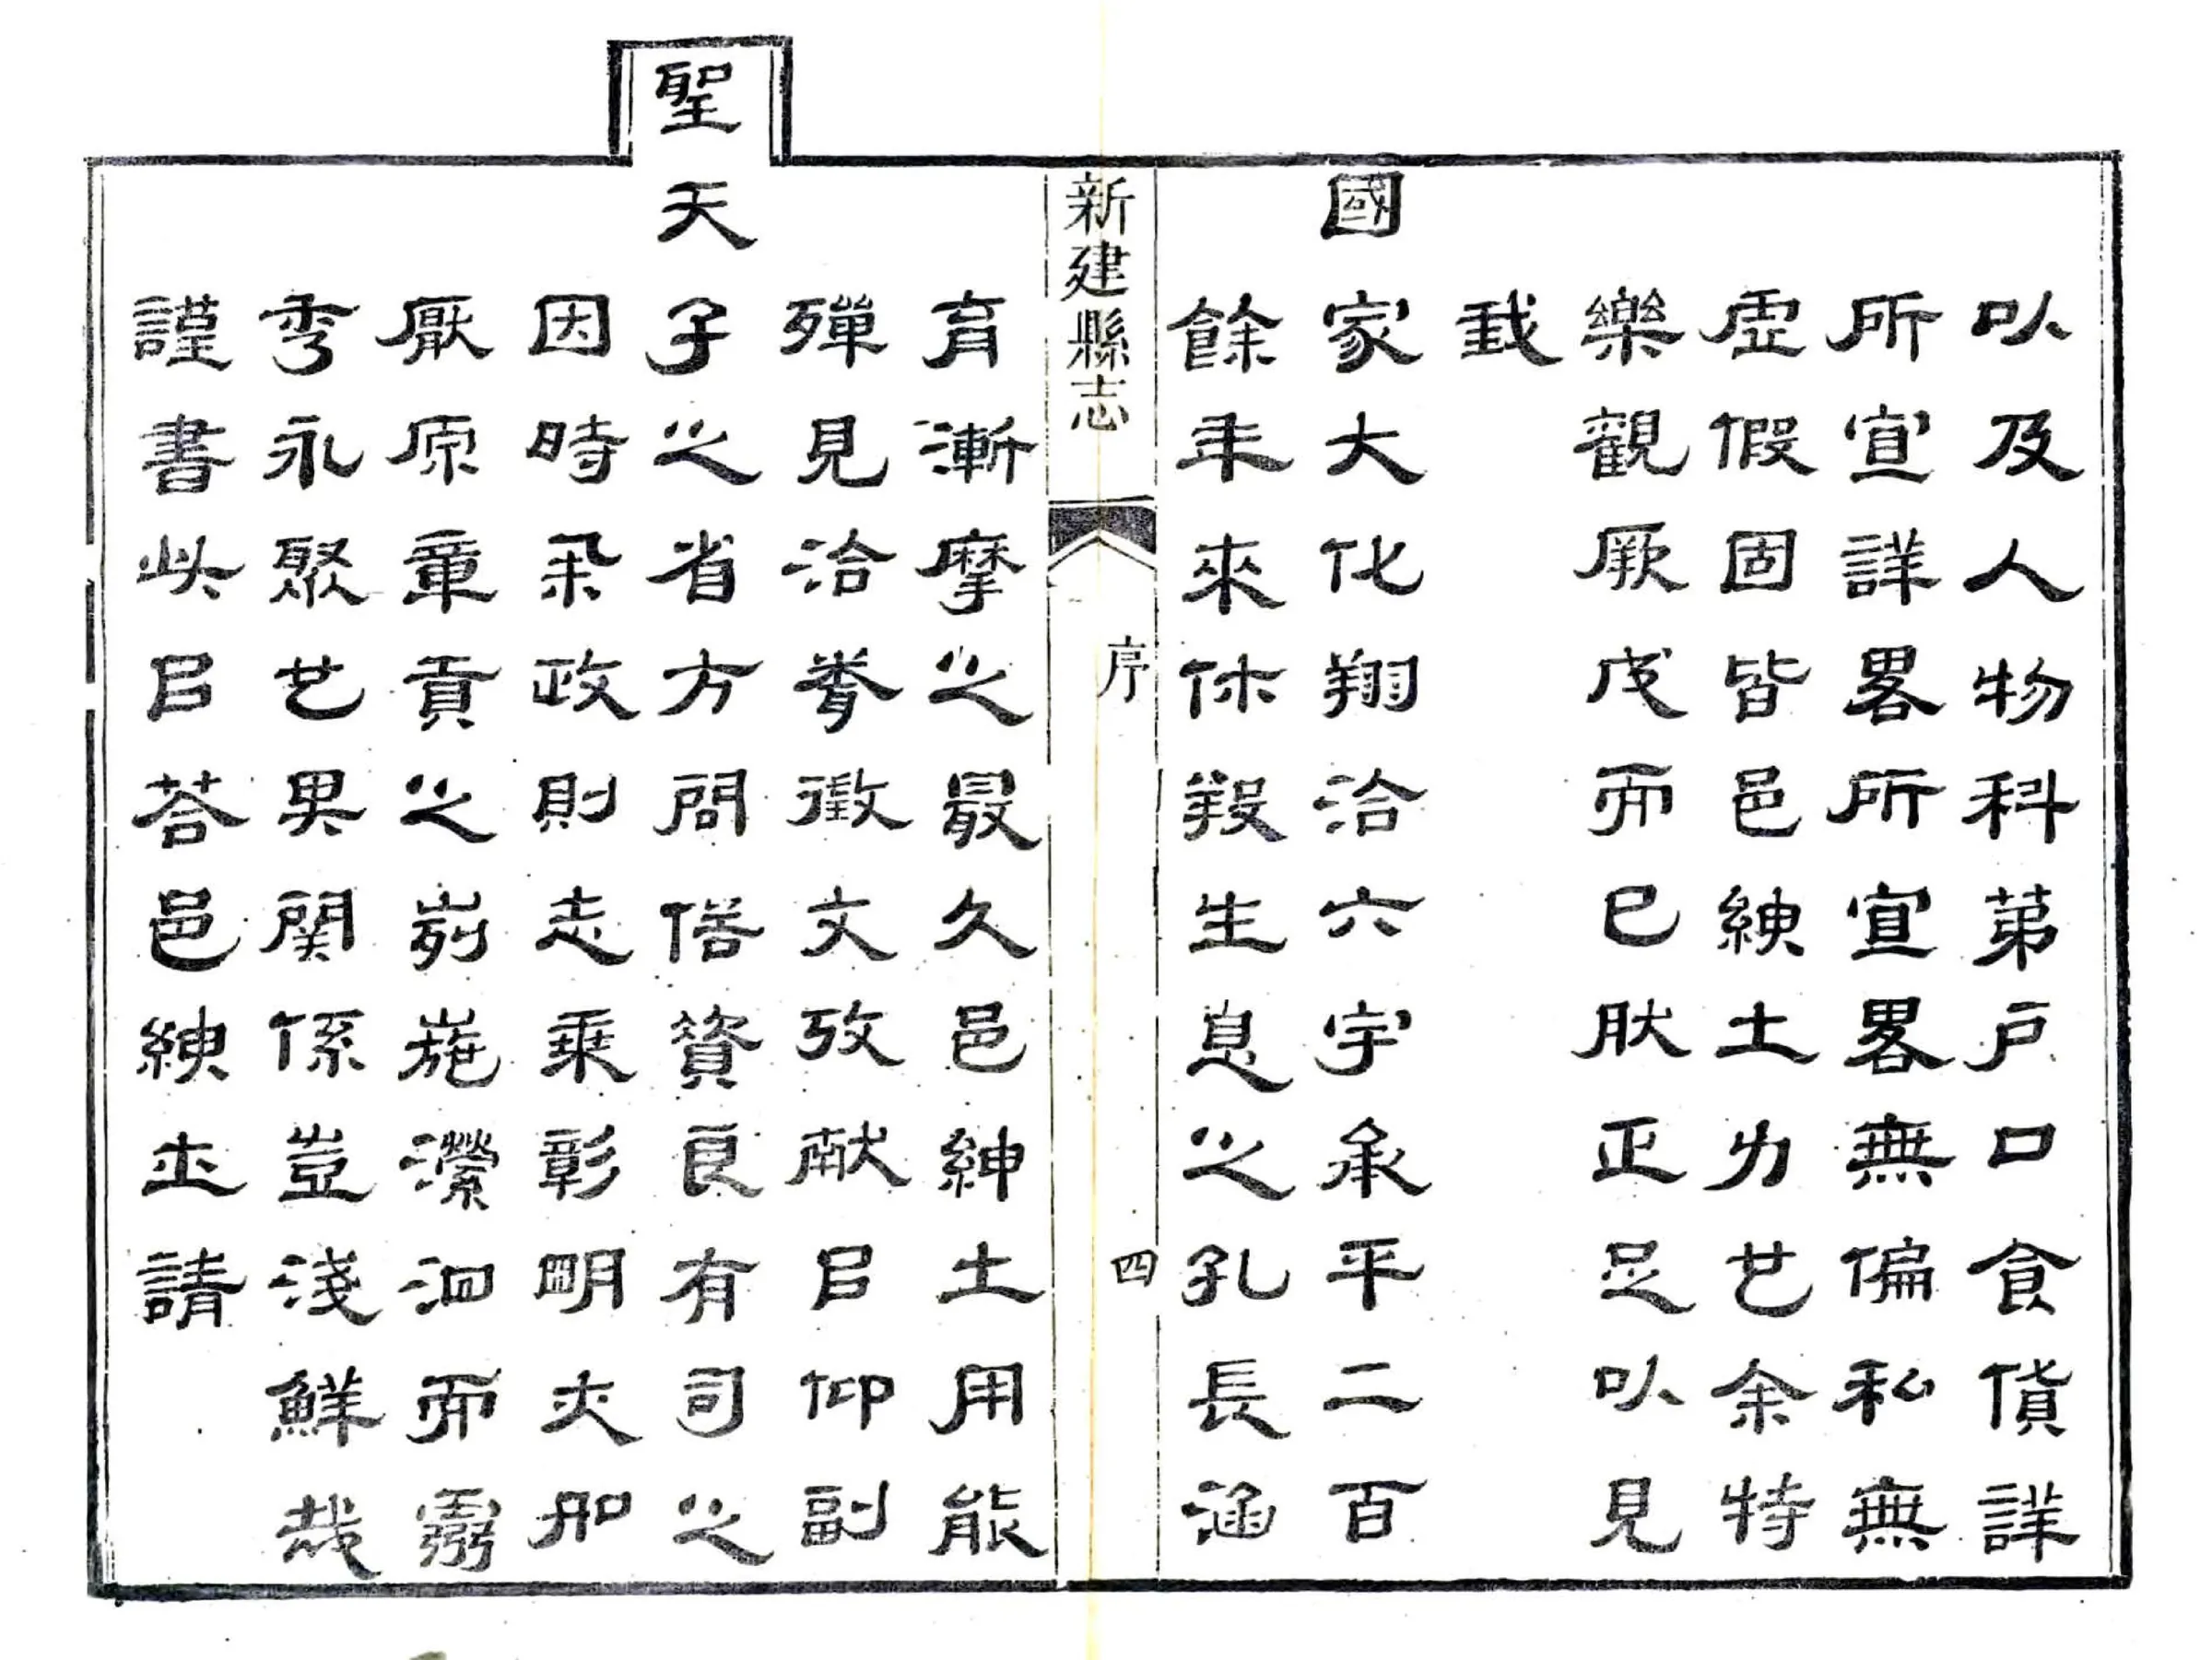 以及人物科第戶口食貨詳
所宜詳畧所宜畧無偏私無
虛假固皆邑紳士力也余特
樂觀厥成而已然正足以見
我
國家大化翔洽六宇承平二百
餘年來休養生息之孔長涵
新建縣志
序
四
育漸摩之最久邑紳士用能
殫見洽聞徵文攷献以仰副
聖天子之省方問俗資良有司之
因時采政則志乘彰明夫那
厭原章貢之峛崺瀠洄而靈
秀永聚也果関係豈淺鮮哉
謹書此以荅邑紳之請